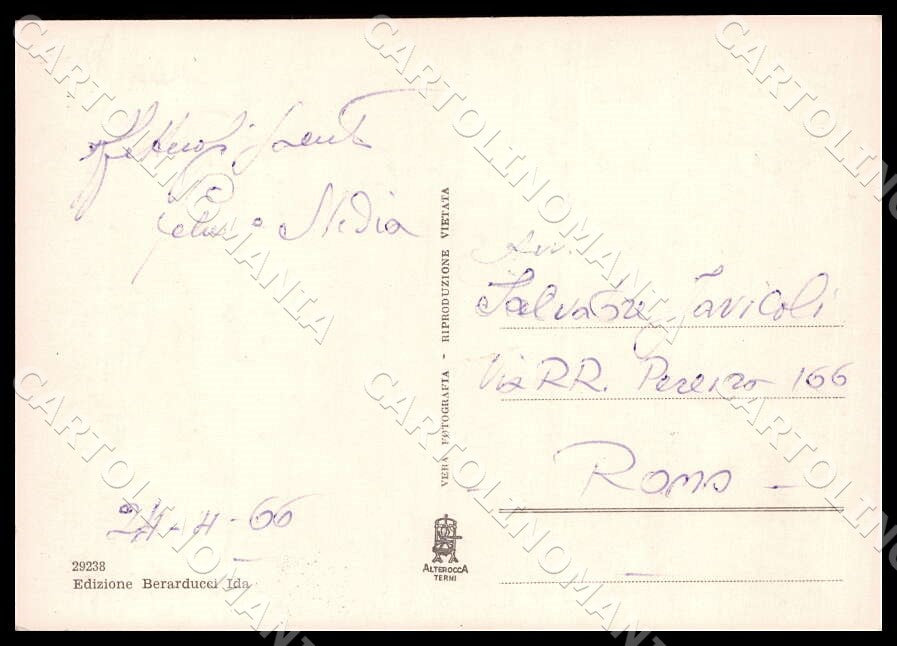 Affettuosi saluti
Nedia
24-4-66
29238
Edizione Berarducci Ida
VERA FOTOGRAFIA - RIPRODUZIONE VIETATA
ALTEROCCA
TERNI
Avv.
Salvatore Iavicoli
Via RR. Pereira 166
Roma
CARTOLINOMANIA
CARTOLINOMANIA
CARTOLINOMANIA
CARTOLINOMANIA
CARTOLINOMANIA
CARTOLINOMANIA